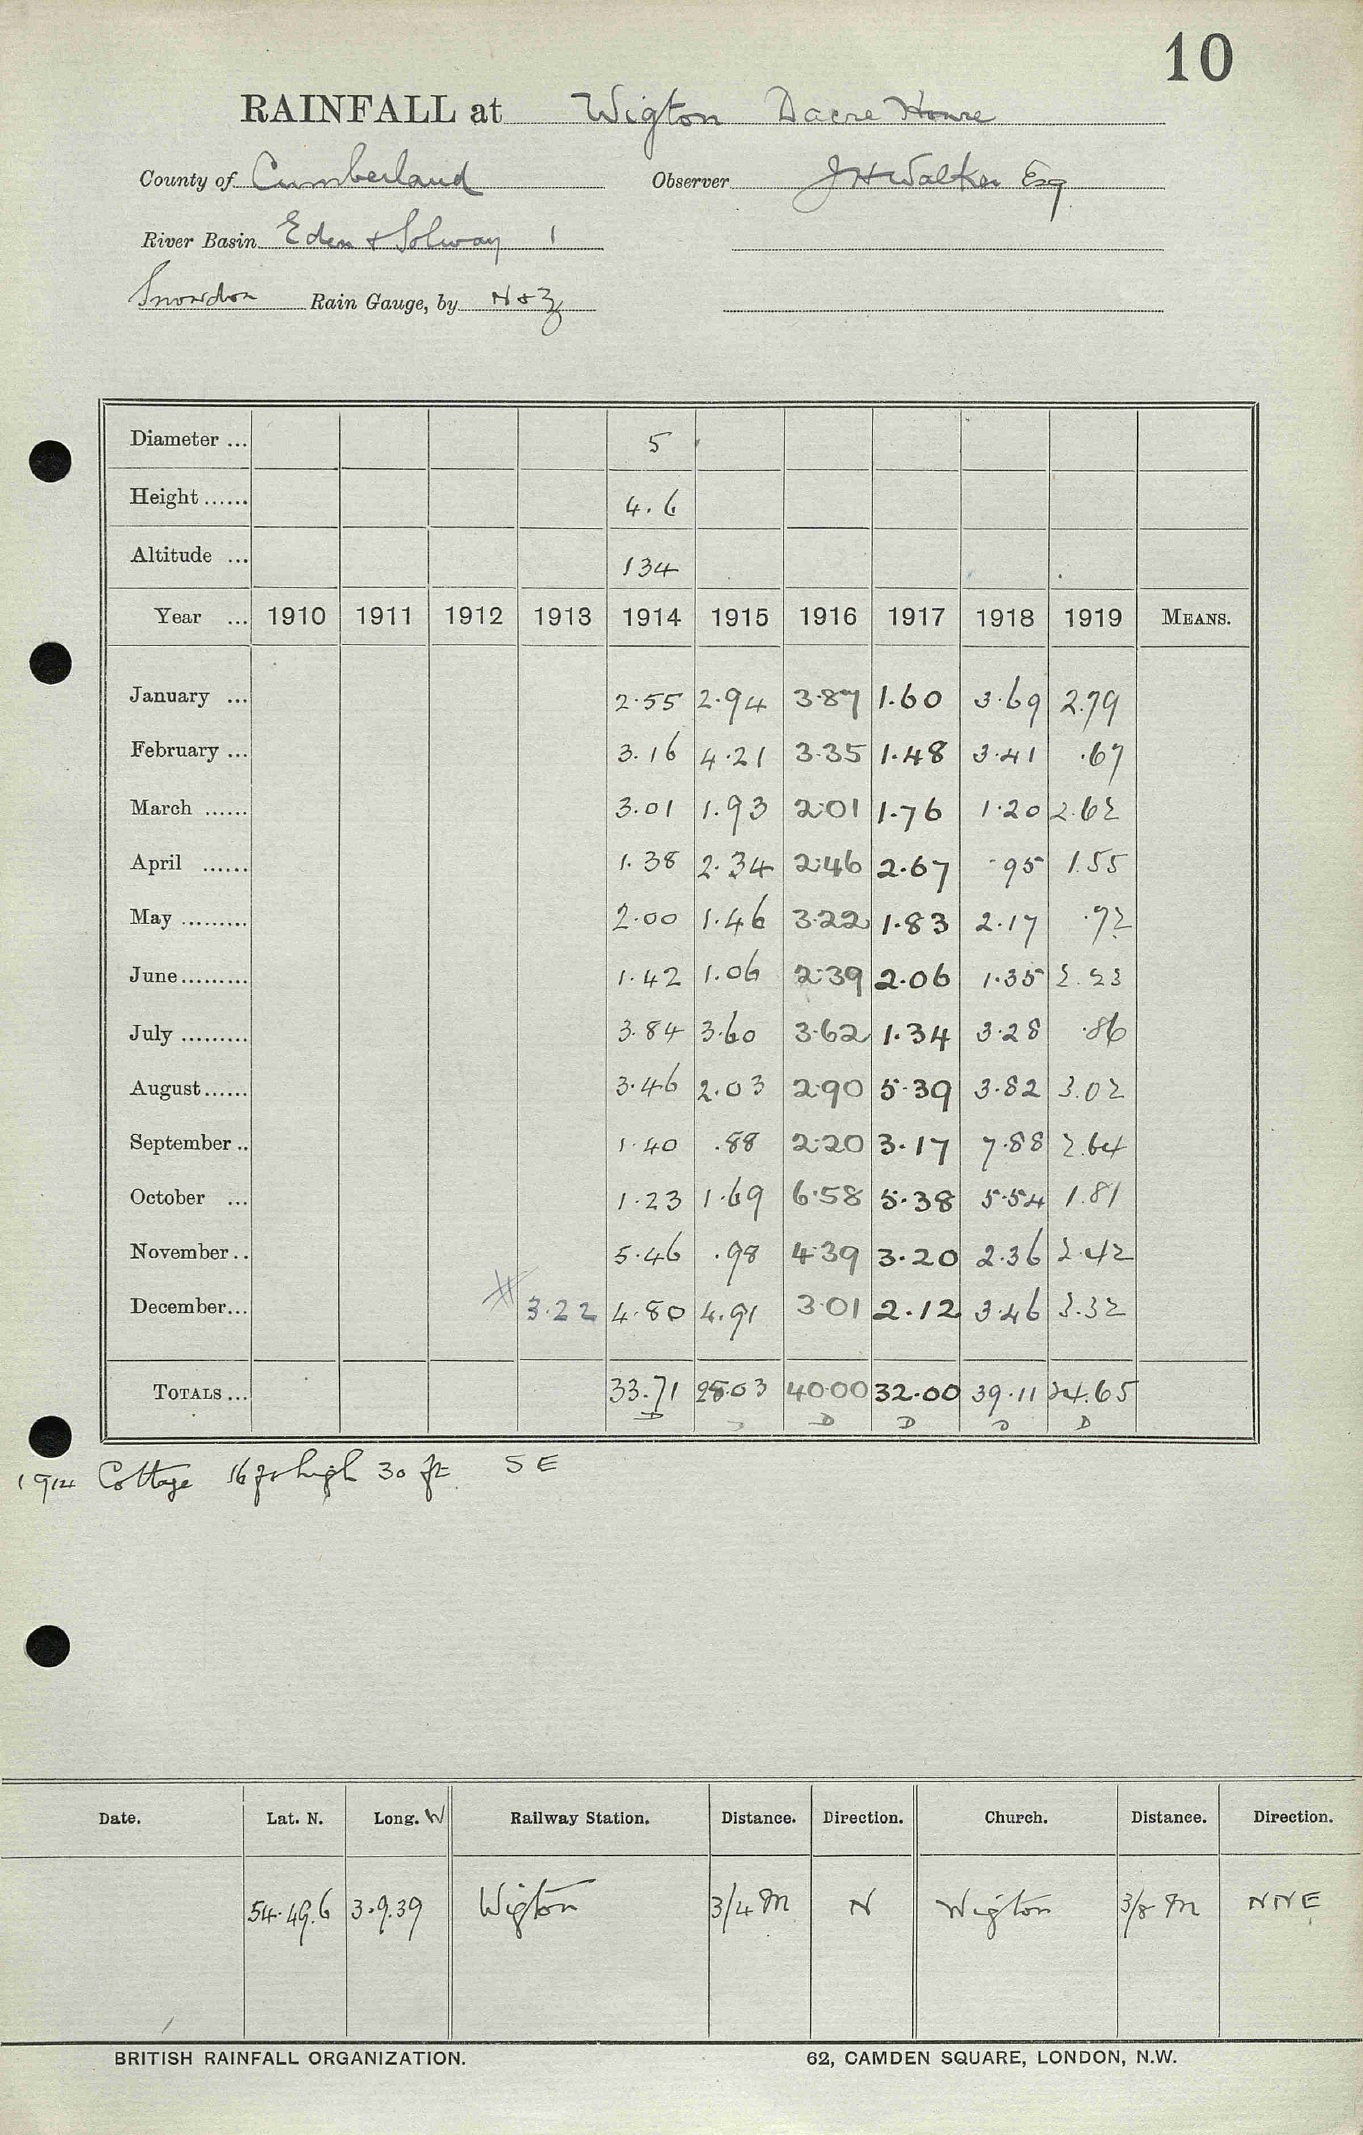 10
RAINFALL at Wigton Dacre House
County of Cumberland Observer J H Walker Esq
River Basin Eden & Solway 1
Snowdon Rain Gauge, by N & Z
Diameter ... 5
Height ...... 4.6
Altitude ... 134
Year ... 1910 1911 1912 1913 1914 1915 1916 1917 1918 1919 MEANS.
January ... 2.55 2.94 3.87 1.60 3.69 2.79
February ... 3.16 4.21 3.35 1.48 3.41 .67
March ...... 3.01 1.93 2.01 1.76 1.20 2.62
April ...... 1.38 2.34 2.46 2.67 .95 1.55
May ......... 2.00 1.46 3.22 1.83 2.17 .72
June ......... 1.42 1.06 2.39 2.06 1.35 2.23
July ......... 3.84 3.60 3.62 1.34 3.28 .86
August ...... 3.46 2.03 2.90 5.39 3.82 3.02
September .. 1.40 .88 2.20 3.17 7.88 2.64
October ... 1.23 1.69 6.58 5.38 5.54 1.81
November .. 5.46 .98 4.39 3.20 2.36 2.42
December ... # 3.22 4.80 4.91 3.01 2.12 3.46 3.32
TOTALS ... 33.71 28.03 40.00 32.00 39.11 24.65
D D D D D D
1914 Cottage 16 ft high 30 ft SE
Date. Lat. N. Long. W Railway Station. Distance. Direction. Church. Distance. Direction.
54.49.6 3.9.39 Wigton 3/4 M N Wigton 3/8 M NNE
BRITISH RAINFALL ORGANIZATION. 62, CAMDEN SQUARE, LONDON, N.W.